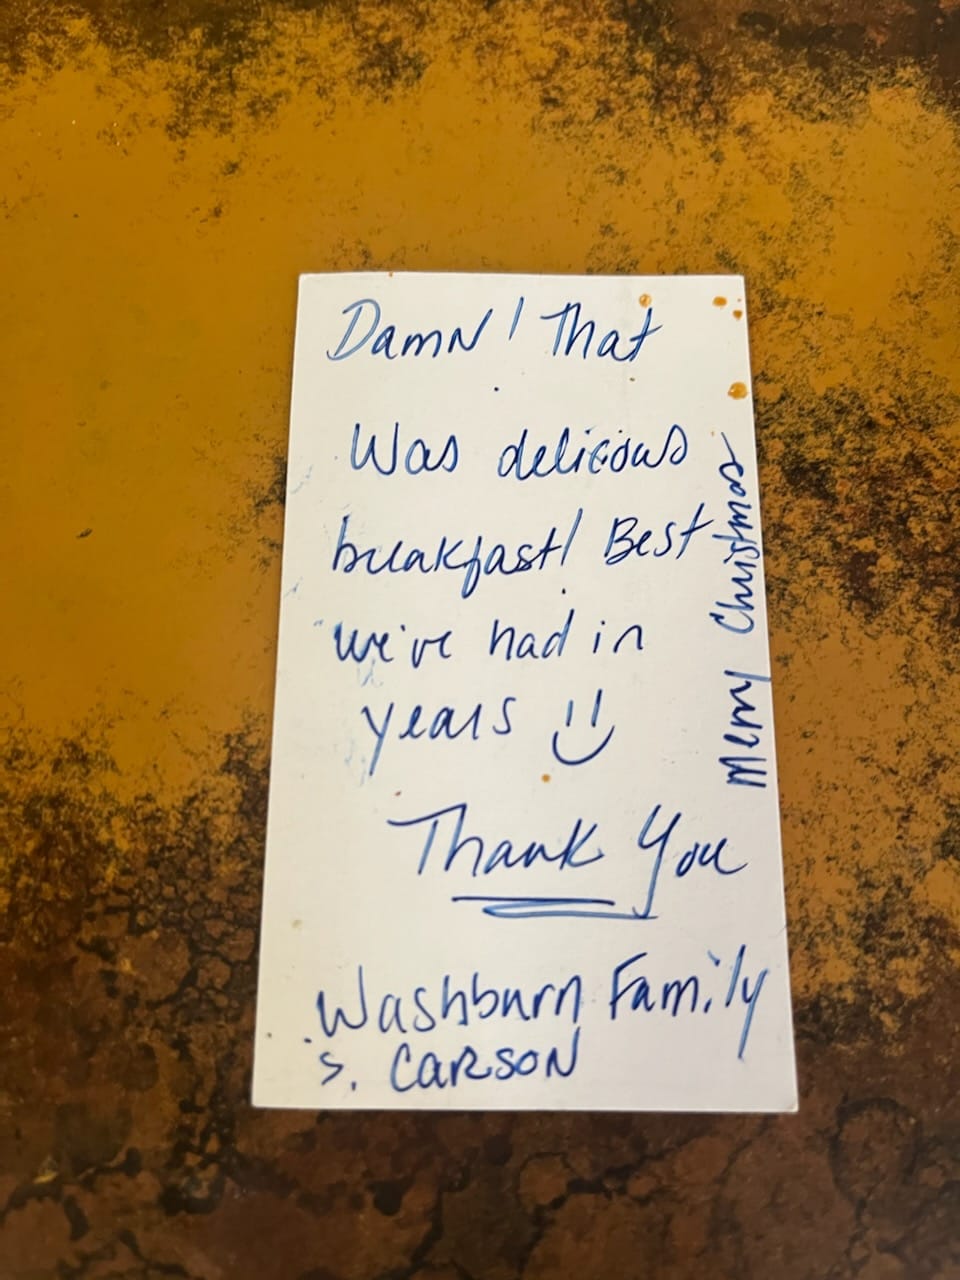 Damn! That
Was delicious
breakfast! Best
we've had in
years
Thank You
Washburn Family
S. CARSON
Merry Christmas